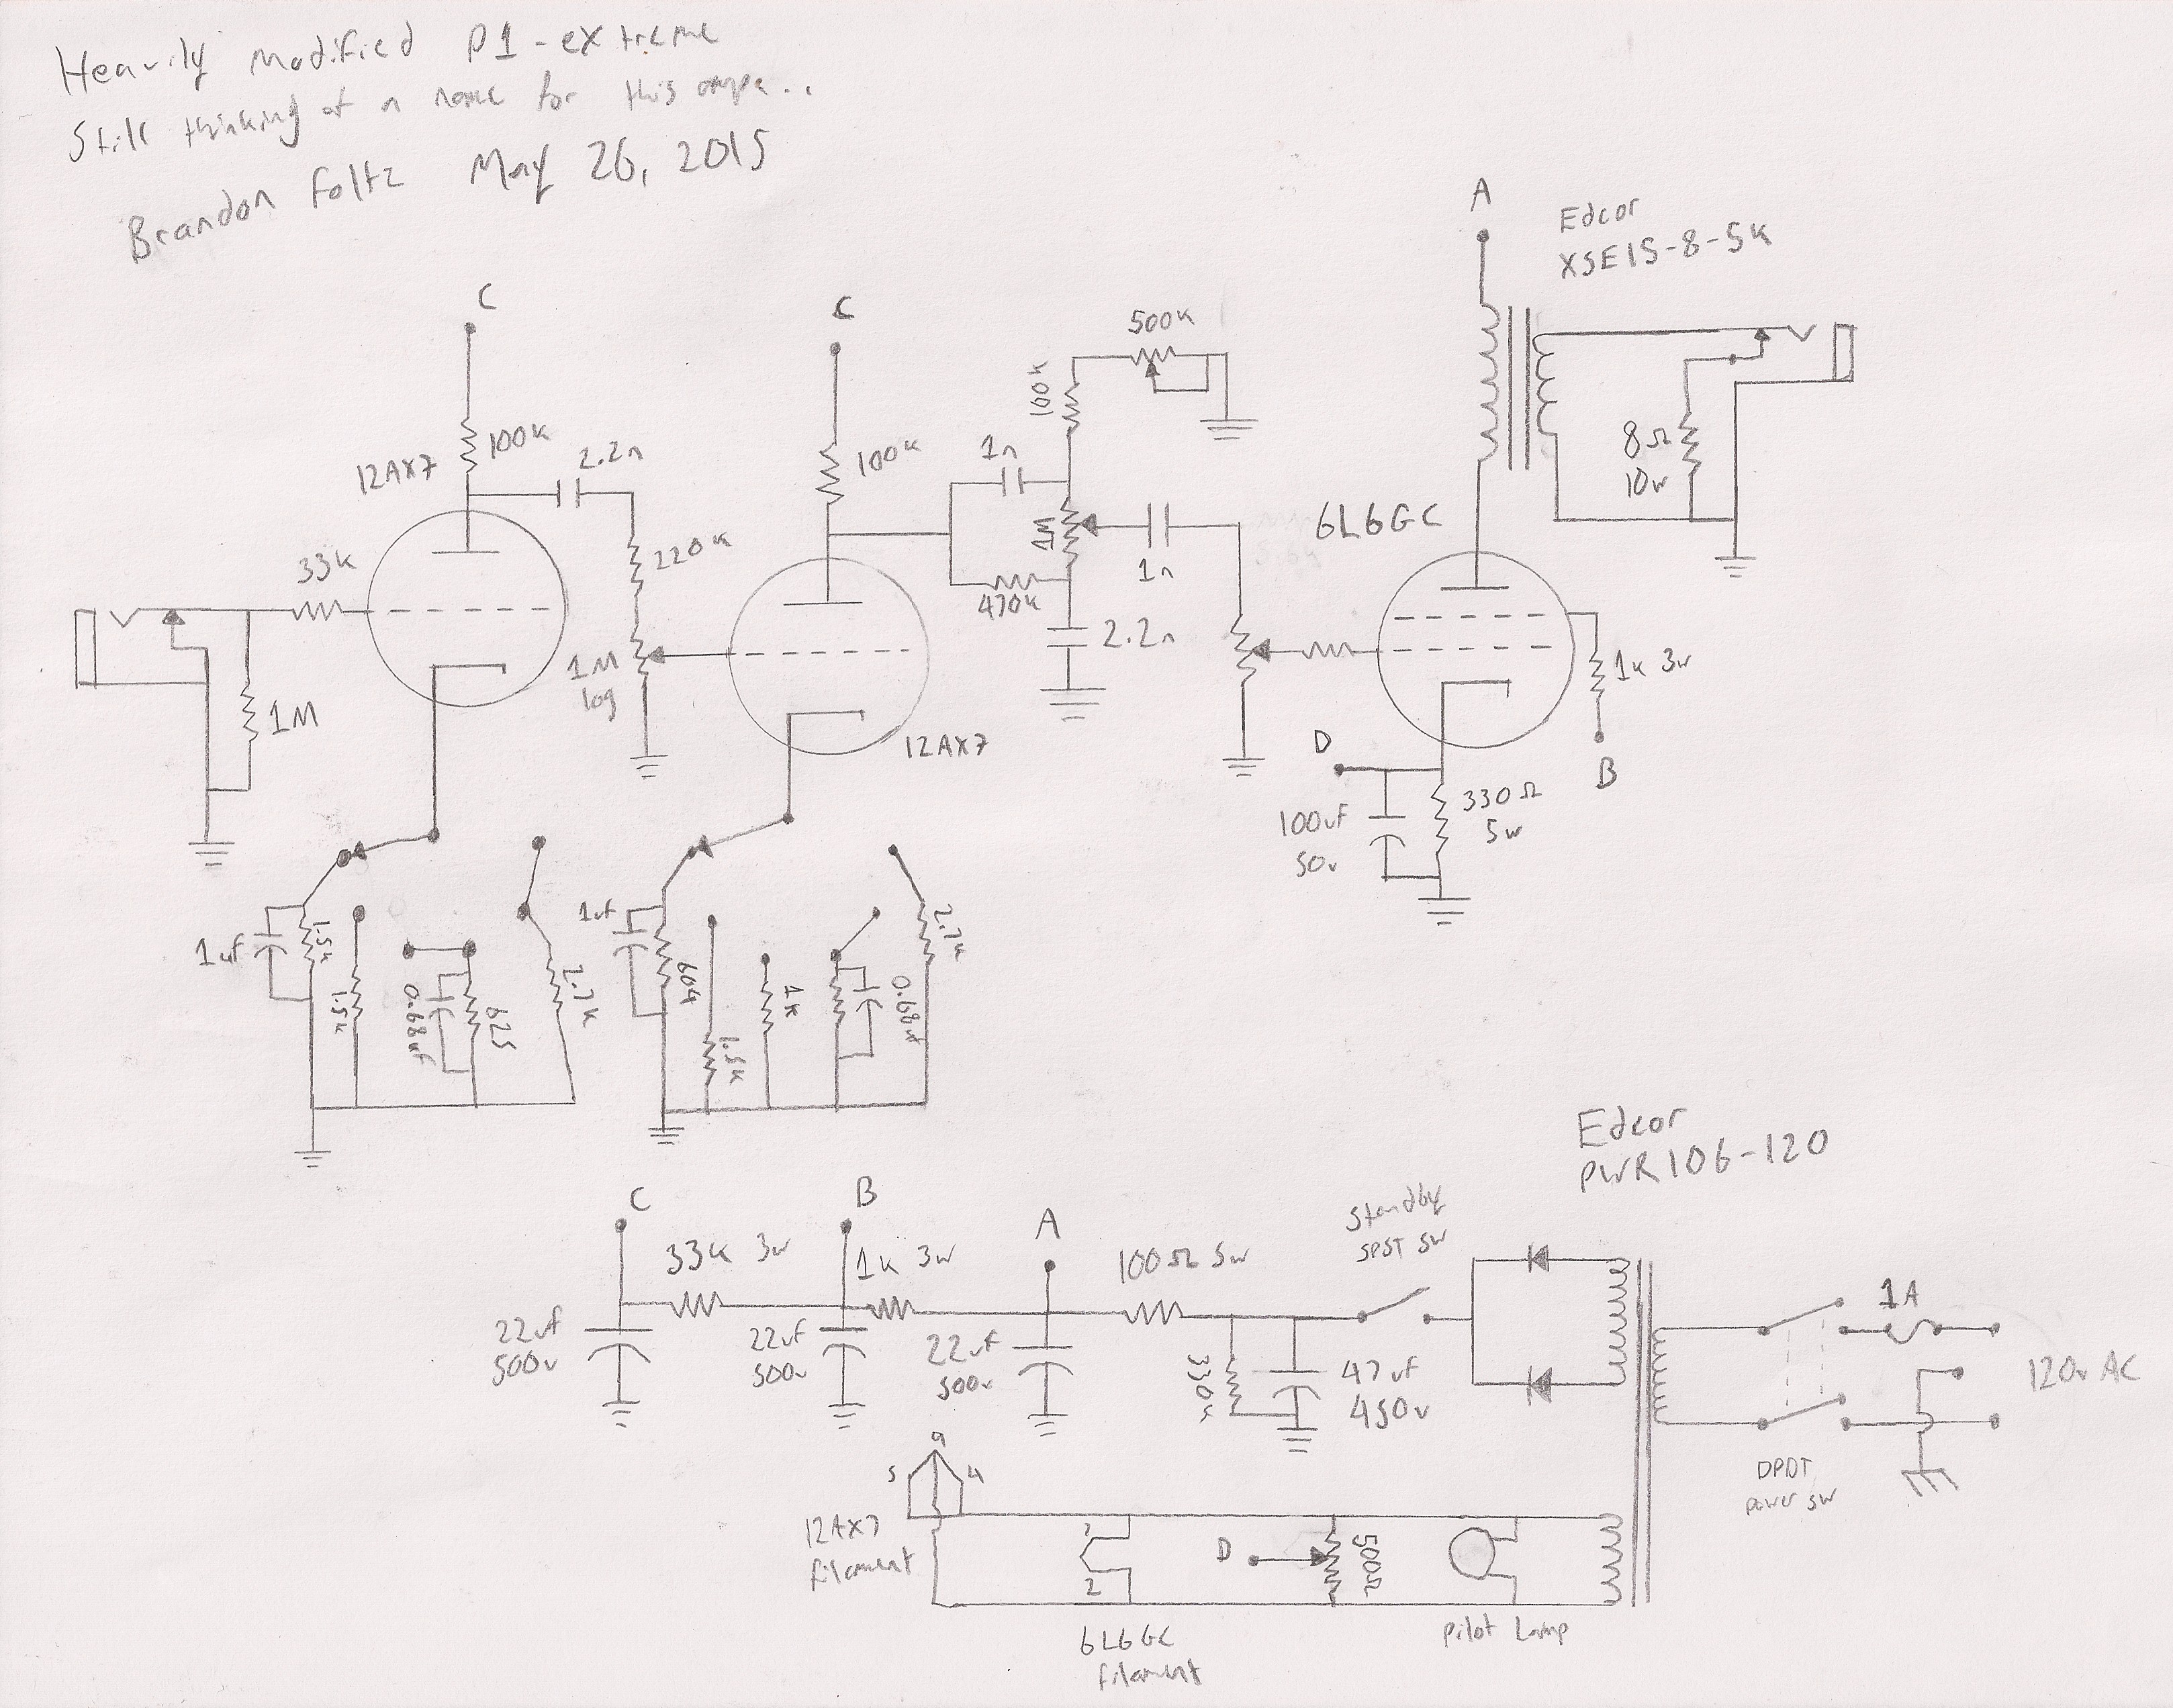 Heavily modified P1-extreme
Still thinking of a name for this amp...
Brandon Foltz May 26, 2015
A
Edcor
XSE15-8-5K
C
C
500K
100K
12AX7
100K
2.2n
100K
1n
8Ω
10W
6L6GC
33K
220K
1M
1n
470K
2.2n
1M
log
1K 3W
1M
12AX7
D
B
100uf
50v
330Ω
5w
1uf
1.5K
1.5K
0.68uf
625
2.7K
1uf
604
1.5K
1K
0.68uf
2.7K
Edcor
PWR106-120
C
B
A
33K 3w
1K 3w
100Ω 5w
Standby
SPST SW
22uf
500v
22uf
500v
22uf
500v
330K
47uf
450v
1A
120v AC
DPDT
power sw
9
5
4
12AX7
filament
7
2
D
500Ω
6L6GC
filament
Pilot Lamp